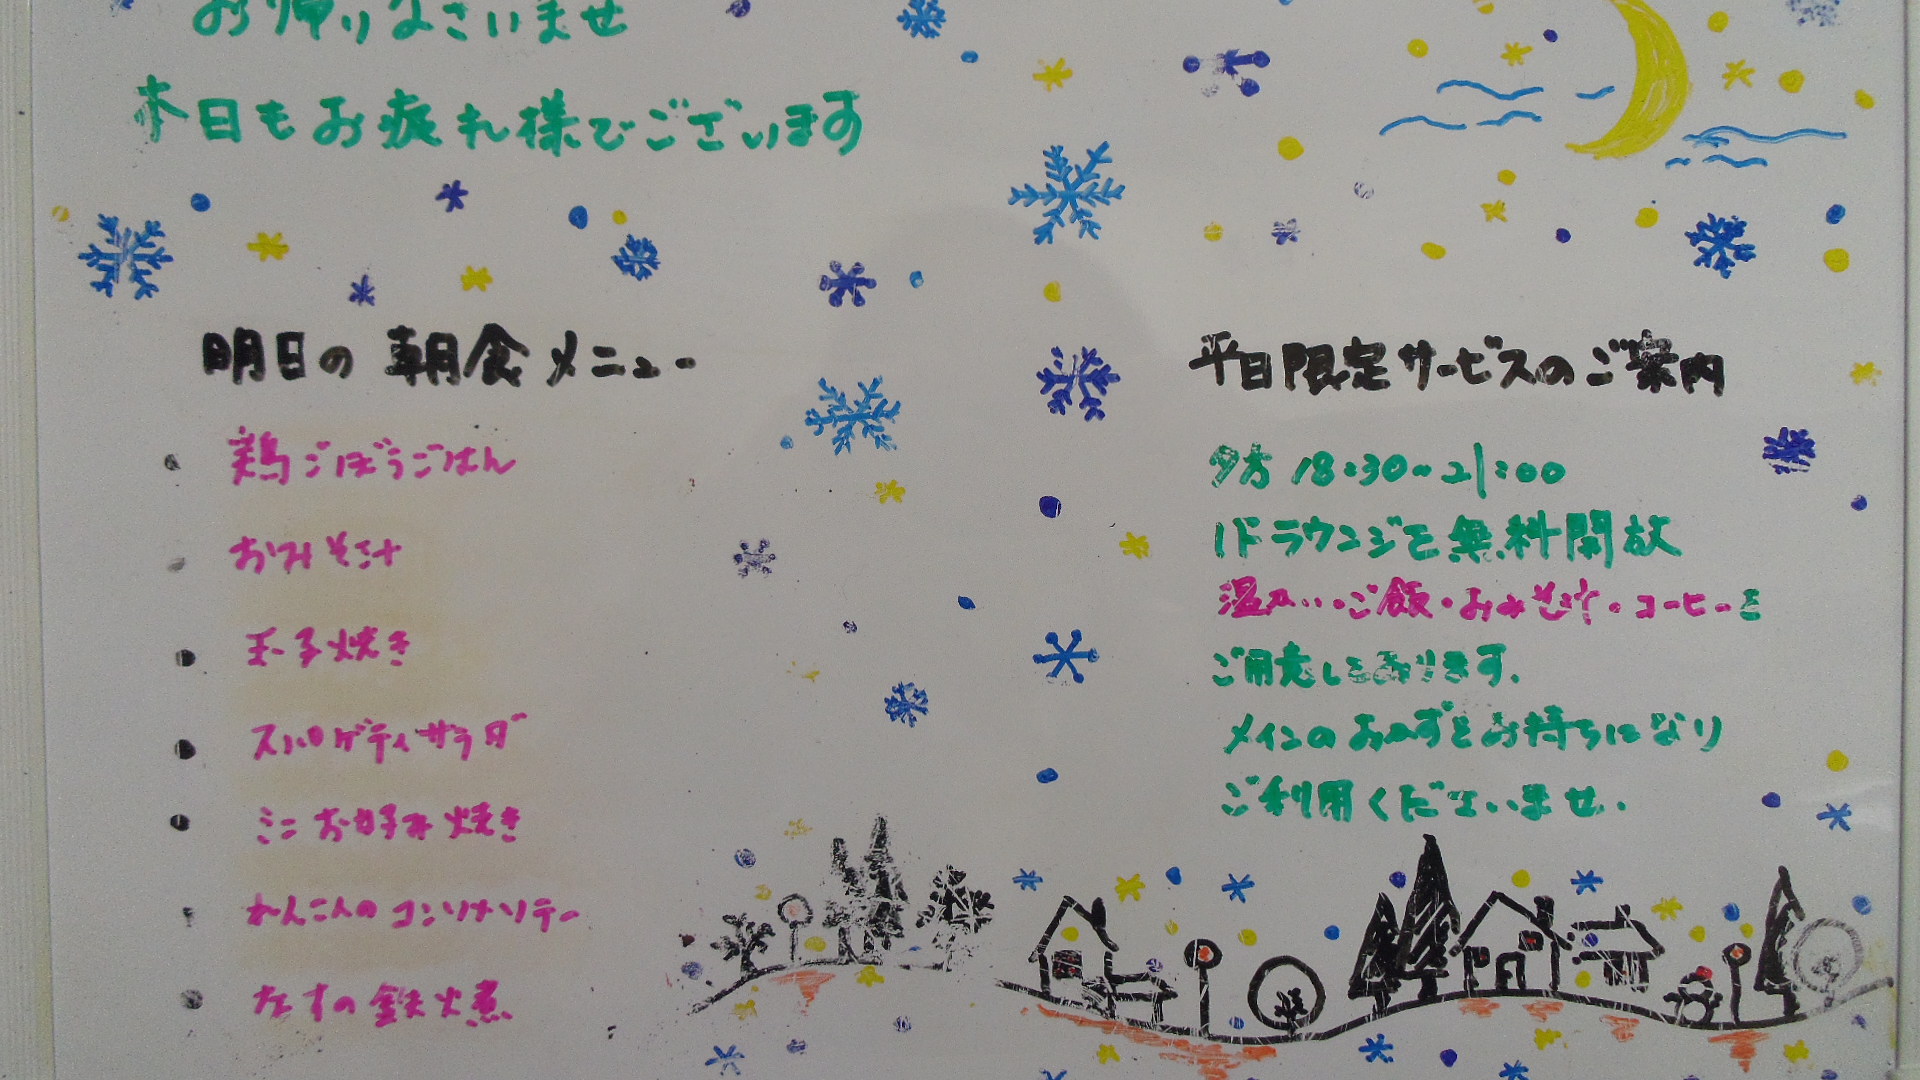 お帰りなさいませ
本日もお疲れ様でございます
明日の朝食メニュー
鶏ごぼうごはん
おみそ汁
玉子焼き
スパゲティサラダ
ミニお好み焼き
れんこんのコンソメソテー
なすの鉄火煮
平日限定サービスのご案内
夕方18:30~21:00
1Fラウンジを無料開放
温かい・ご飯・おみそ汁・コーヒーを
ご用意しております。
メインのおかずをお持ちになり
ご利用くださいませ.